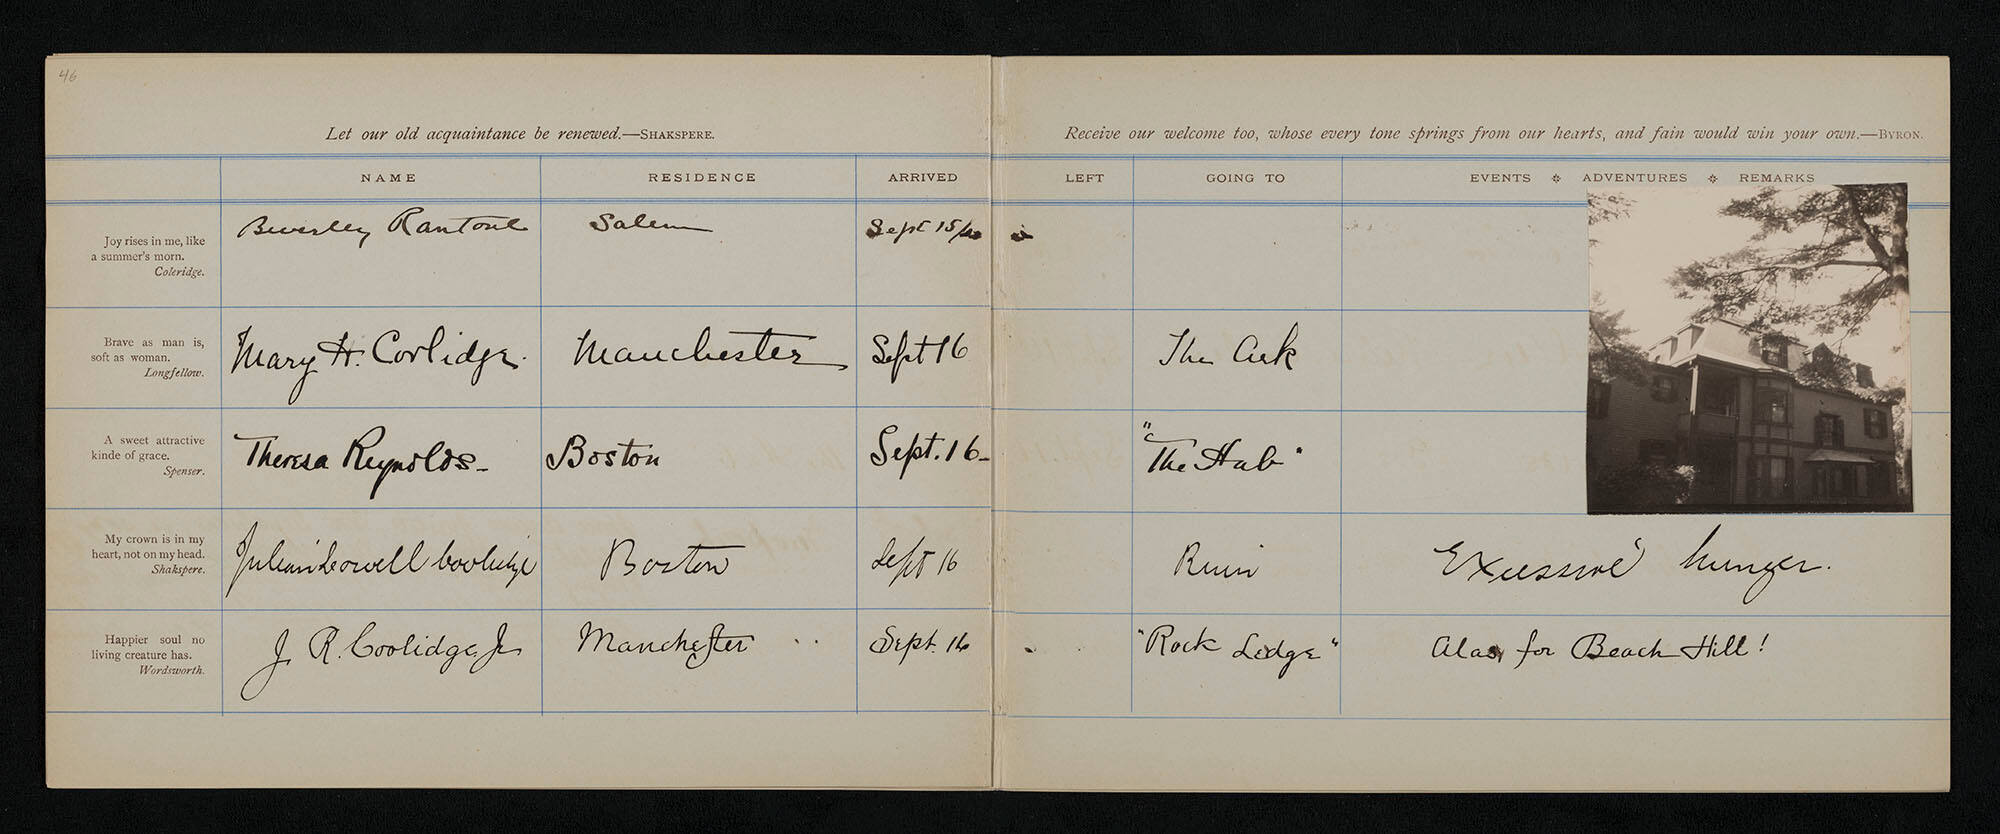 46
Let our old acquaintance be renewed.—SHAKSPERE.
Receive our welcome too, whose every tone springs from our hearts, and fain would win your own.—BYRON.
NAME RESIDENCE ARRIVED LEFT GOING TO EVENTS ADVENTURES REMARKS
Joy rises in me, like
a summer's morn.
Coleridge.
Beverley Rantoul Salem Sept 15
Brave as man is,
soft as woman.
Longfellow.
Mary H. Coolidge. Manchester Sept 16 The Ark
A sweet attractive
kinde of grace.
Spenser.
Theresa Reynolds Boston Sept. 16 "The Hub"
My crown is in my
heart, not on my head.
Shakspere.
Julian Lowell Coolidge Boston Sept 16 Ruin Excessive hunger.
Happier soul no
living creature has.
Wordsworth.
J. R. Coolidge Jr Manchester Sept. 16 "Rock Ledge" Alas for Beach Hill!